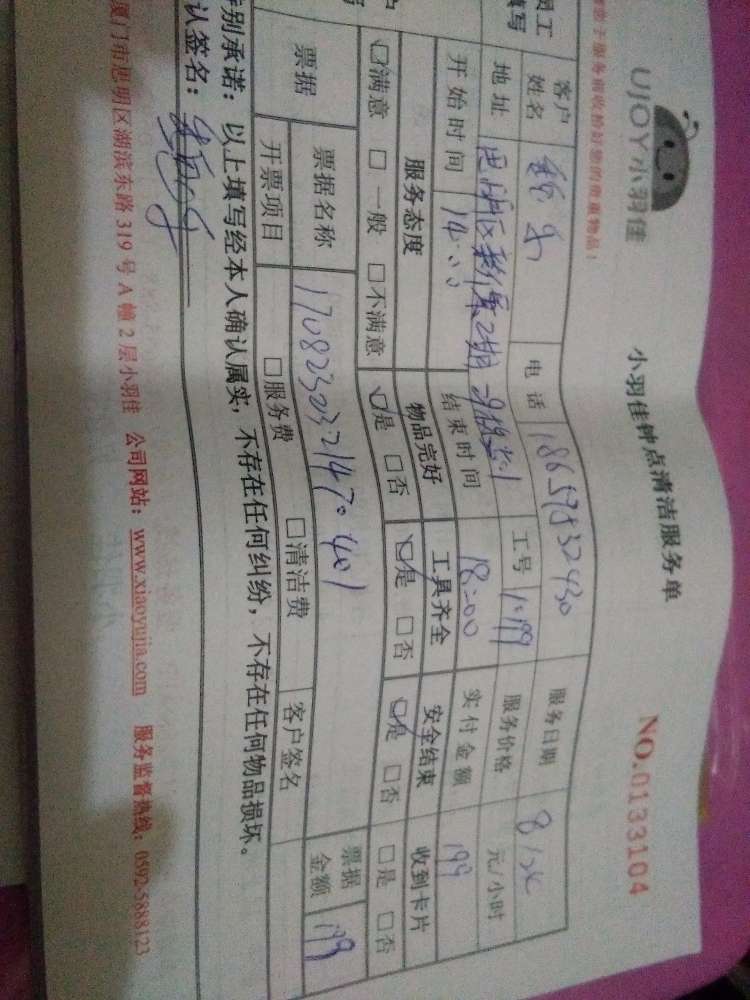 UJOY小羽佳
小羽佳钟点清洁服务单
NO.0133104
服务前收拾好您的贵重物品！
员工
填写
客户
姓名
电话
服务日期
地址
工号
服务价格
元/小时
开始时间 14:00
结束时间 18:00
实付金额 199
服务态度 物品完好 工具齐全 安全结束 收到卡片
☑满意 □一般 □不满意 ☑是 □否 ☑是 □否 ☑是 □否 □是 □否
票据 票据名称
票据
金额 199
开票项目 □服务费 □清洁费 客户签名
别承诺：以上填写经本人确认属实，不存在任何纠纷，不存在任何物品损坏。
认签名：
厦门市思明区湖滨东路319号A幢2层小羽佳 公司网站：www.xiaoyujia.com 服务监督热线：0592-5888123